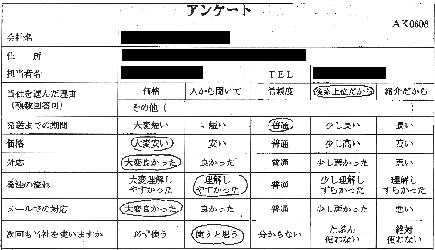 アンケート
AK0608
会社名
住 所
担当者名 TEL
当社を選んだ理由 価格 人から聞いて 信頼度 検索上位だから 紹介だから
(複数回答可) その他(
発送までの期間 大変短い 短い 普通 少し長い 長い
価格 大変安い 安い 普通 少し高い 高い
対応 大変良かった 良かった 普通 少し悪かった 悪い
の流れ 大変理解しやすかった 理解しやすかった 普通 少し理解しずらかった 理解しずらかった
メールでの対応 大変良かった 良かった 普通 少し悪かった 悪い
次回も当社を使いますか 必ず使う 使うと思う 分からない たぶん使わない 絶対使わない